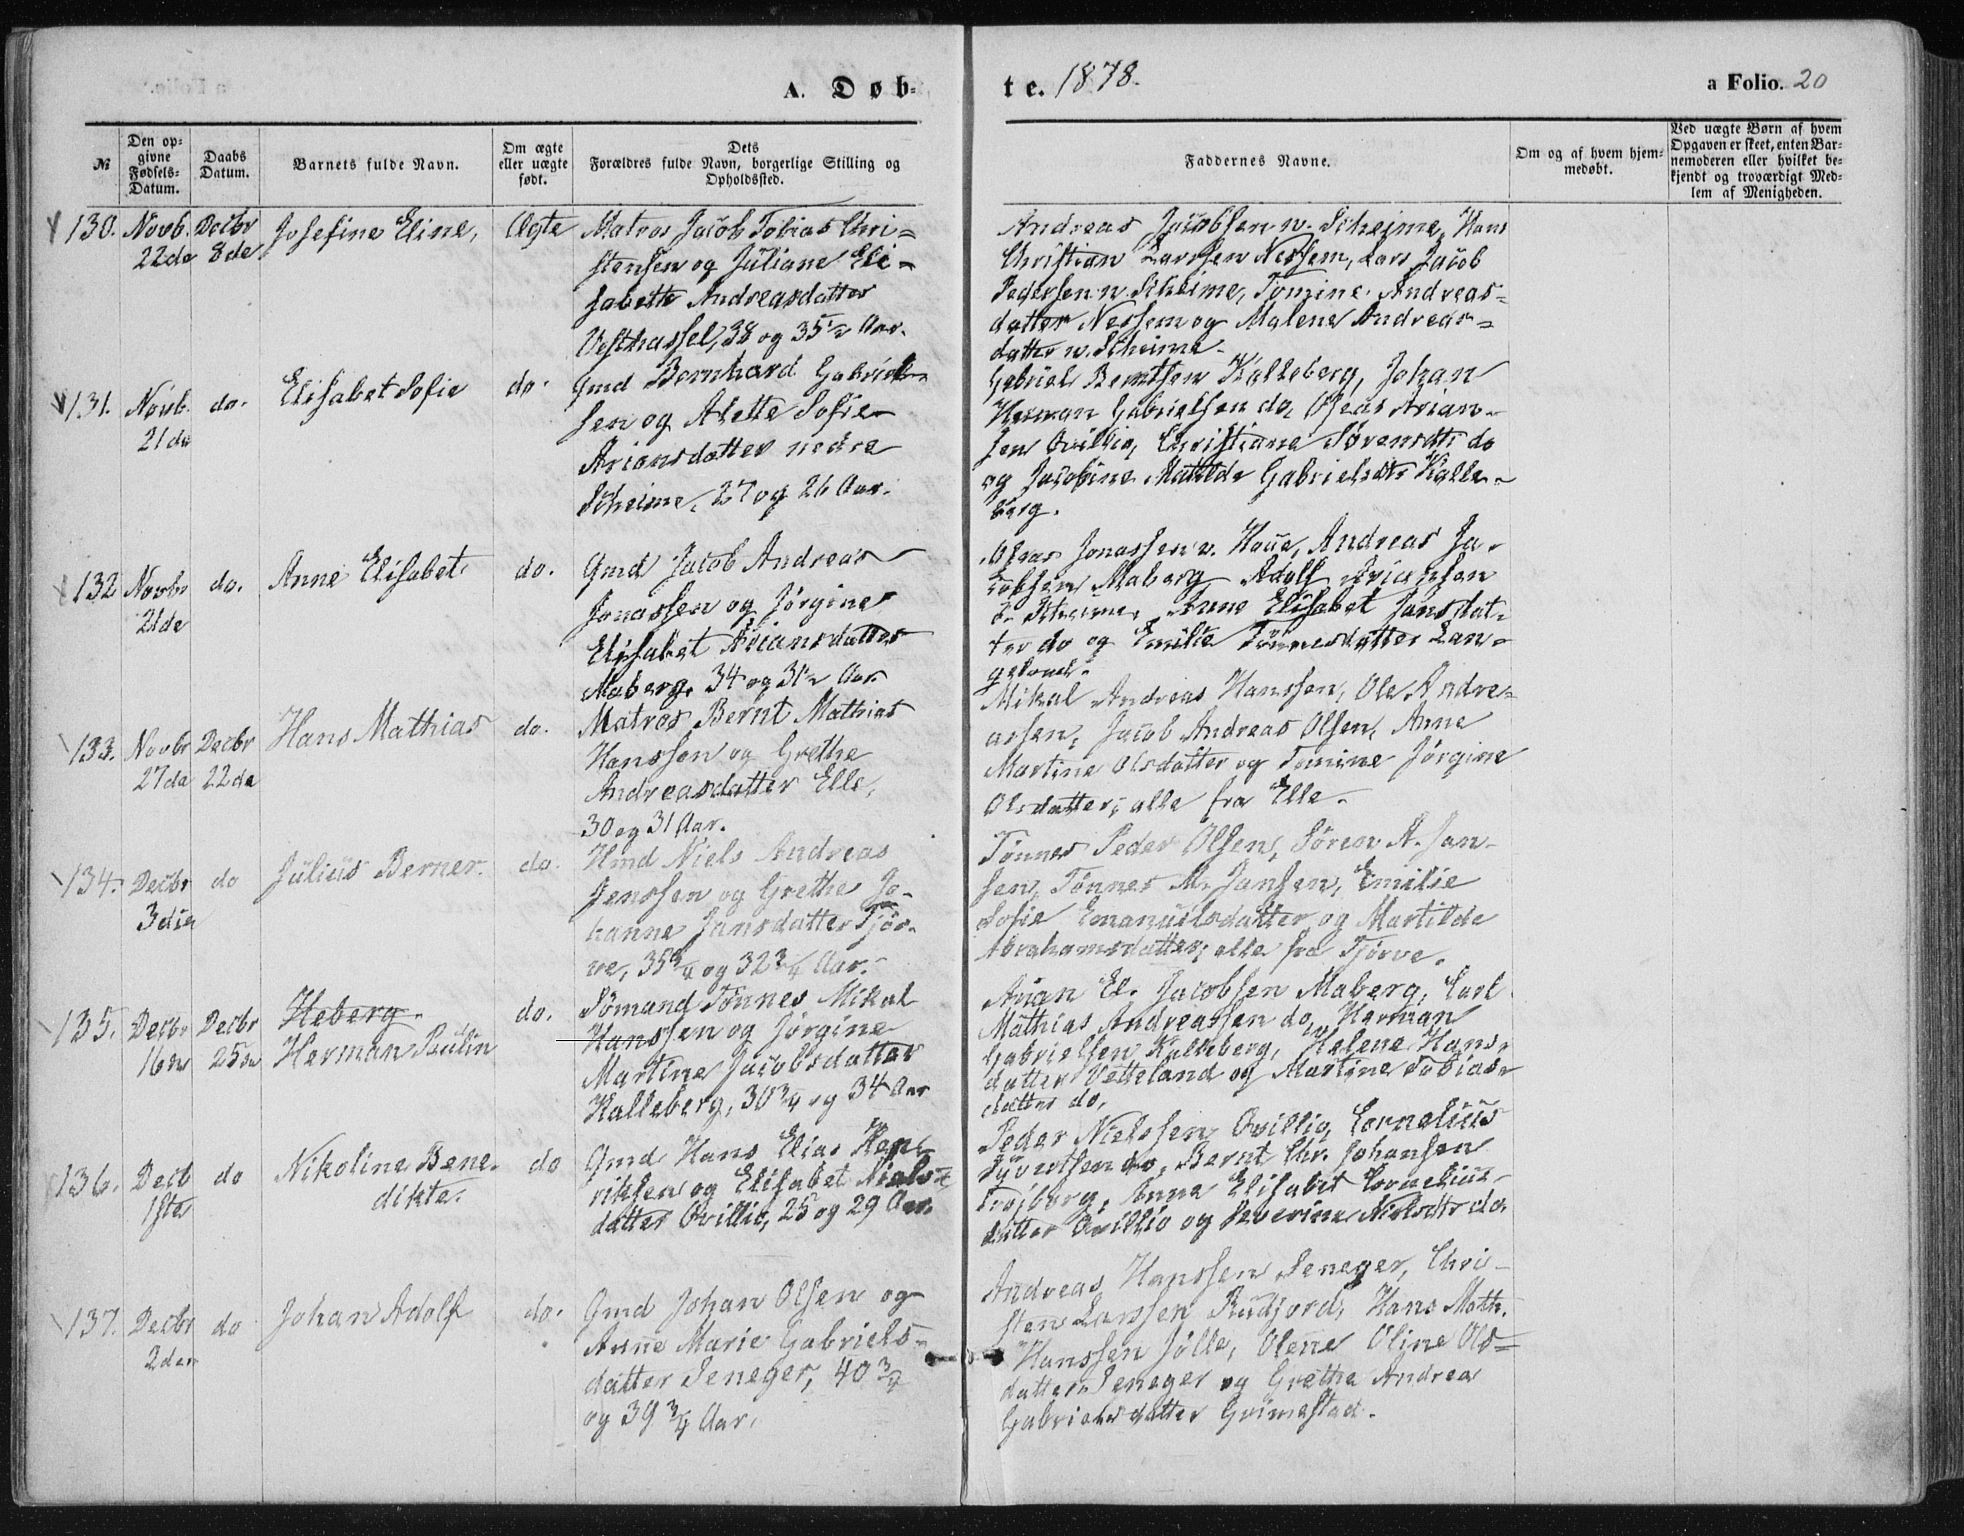 A. Døb-
te. 1878.
a Folio. 20
№
Den op-
givne
Fødsels-
Datum.
Daabs
Datum.
Barnets fulde Navn.
Om ægte
eller uægte
født.
Dets
Forældres fulde Navn, borgerlige Stilling og
Opholdssted.
Faddernes Navne.
Om og af hvem hjem-
medøbt.
Ved uægte Børn af hvem
Opgaven er skeet, enten Bar-
nemoderen eller hvilket be-
kjendt og troværdigt Med-
lem af Menigheden.
130.
Novb.
22de
Decbr
8de
Josefine Eline,
Ægte
Matros Jacob Tobias Chri-
stensen og Juliane Eli-
sabeth Andreasdatter
Vesthassel, 38 og 35½ Aar.
Andreas Jacobsen n. Skeime, Hans
Christian Larssen Nessem, Lars Jacob
Pedersen n. Skeime, Tomine Andreas-
datter Nessem og Malene Andreas-
datter n. Skeime.
131.
Novb.
21de
do.
Elisabet Sofie
do.
Gmd Bernhard Gabriel-
sen og Alette Sofie
Ariansdatter nedre
Skeime, 27 og 26 Aar.
Gabriel Berntsen Kalleberg, Johan
Herman Gabrielsen do, Oseas Arian-
sen Qvillio, Christiane Sørensdtr do
og Jacobine Matilde Gabrielsdtr Kalle-
berg.
132
Novbr
21de
do.
Anne Elisabet
do.
Gmd Jacob Andreas
Jonassen og Jørgine
Elisabet Ariansdatter
Maberg. 34 og 31½ Aar
Oseas Jonassen v. Haue, Andreas Ja-
cobsen Maberg Adolf Ariansen
Skeime, Anne Elisabet Jansdat-
ter do og Emilie Tønnesdatter Lan-
geland.
133.
Novbr
27de
Decbr
22de
Hans Mathias
do.
Matros Bernt Mathias
Hanssen og Grethe
Andreasdatter Elle,
30 og 31 Aar.
Mikal Andreas Hanssen, Ole Andre-
assen, Jacob Andreas Olsen, Anne
Martine Olsdatter og Tomine Jørgine
Olsdatter; alle fra Elle.
134.
Decbr
3die
do
Julius Berner.
do.
Hmd Niels Andreas
Jenssen og Grethe Jo-
hanne Jansdatter Tjør-
ve, 35¾ og 32¾ Aar.
Tønnes Peder Olsen, Søren A. Jan-
sen, Tønnes M. Jansen, Emilie
Sofie Emanuelsdatter og Martilde
Abrahamsdatter; alle fra Tjørve.
135.
Decbr
16de
Decbr
25de
Heberg.
Herman Paulin
do.
Sømand Tønnes Mikal
Hanssen og Jørgine
Martine Jacobsdatter
Kalleberg, 30¾ og 34 Aar
Anan El. Jacobsen Maberg, Carl
Mathias Andreassen do, Herman
Gabrielsen Kalleberg, Helene Hans-
datter Vetteland og Martine Tobias-
datter do.
136.
Decb
1ste
do
Nikoline Bene-
dikte.
do
Gmd Hans Elias Hen-
riksen og Elisabet Niels-
datter Qvillio, 25 og 29 Aar.
Peder Nielssen Qvillio, Cornelius
Syvertsen do, Bernt Chr. Johansen
Frøjberg, Anne Elisabet Cornelius-
datter Qvillio og Severine Nielsdtr do.
137.
Decbr
2den
do
Johan Adolf
do.
Gmd Johan Olsen og
Anne Marie Gabriels-
datter Seneger, 40¾
og 39¾ Aar.
Andreas Hanssen Seneger, Chri-
sten Larssen Rudjord, Hans Math.
Hanssen Jølle, Olene Oline Ols-
datter Seneger og Grethe Andrea
Gabrielsdatter Grimestad.